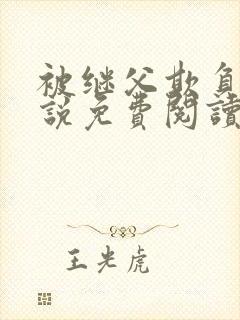 被继父欺負
說免費閱讀
王光虎